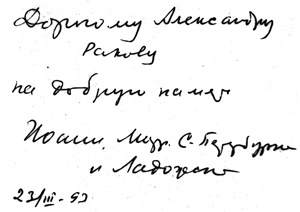 Дорогому Александру
Ракову
на добрую память
Иоанн, Митр. С-Петербургск
и Ладожск
23/III-93